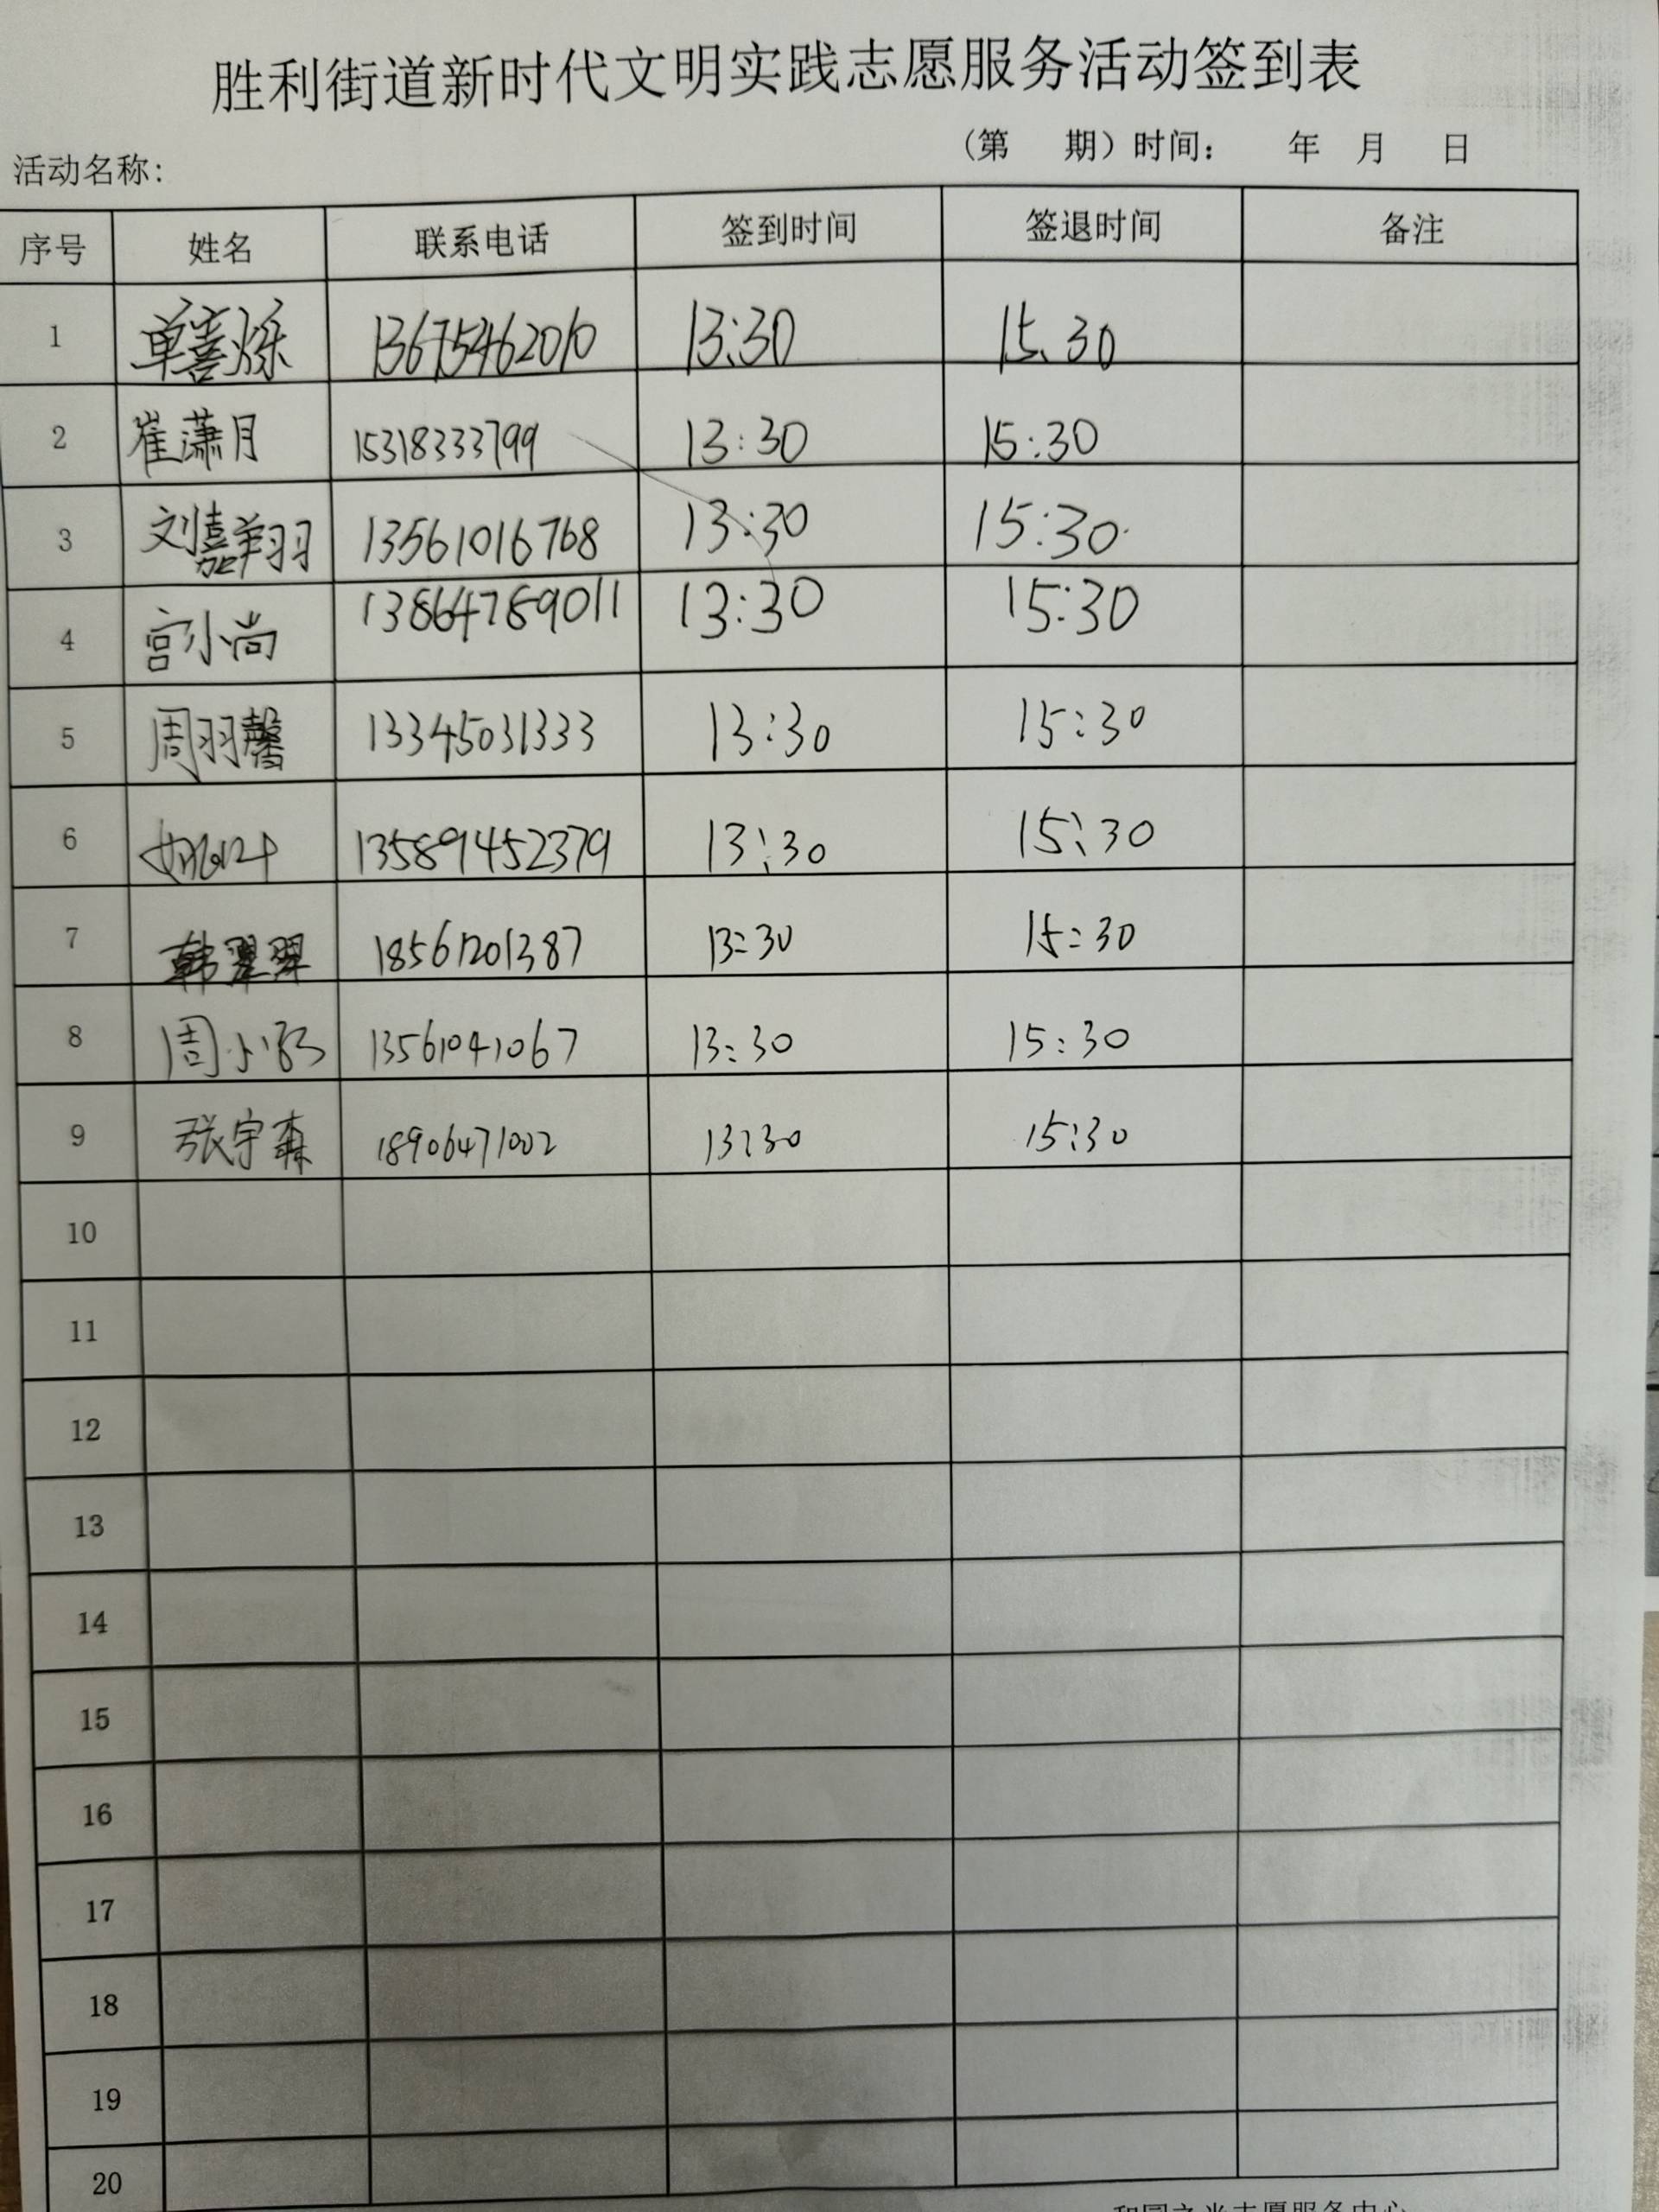 胜利街道新时代文明实践志愿服务活动签到表
（第 期）时间： 年 月 日
活动名称：
序号 姓名 联系电话 签到时间 签退时间 备注
1 单喜烁 13675462010 13:30 15:30
2 崔潇月 15318333799 13:30 15:30
3 刘嘉翔 13561016768 13:30 15:30
4 宫小尚 13864789011 13:30 15:30
5 周羽馨 13345031333 13:30 15:30
6 13589452379 13:30 15:30
7 韩翠翠 18561201387 13:30 15:30
8 周小 13561041067 13:30 15:30
9 张宇森 18906471002 13:30 15:30
10
11
12
13
14
15
16
17
18
19
20
志愿服务中心